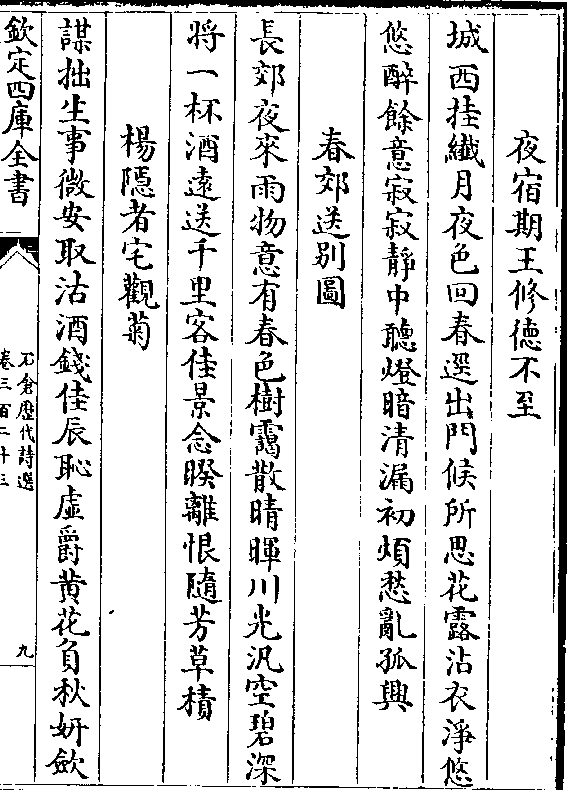 夜宿期王修德不至
城西挂纖月夜色回春選出門候所思花露沾衣淨悠
悠醉餘意寂寂靜中聽燈暗清漏初煩愁亂孤興
春郊送别圖
長郊夜來雨物意有春色樹靄散晴暉川光汎空碧深
将一杯酒遠送千里客佳景念暌離恨隨芳草積
楊隱者宅觀菊
謀拙生事微安取沽酒錢佳辰恥虚爵黄花負秋妍歛
欽定四庫全書
石倉歴代詩選
卷三百二十三
九